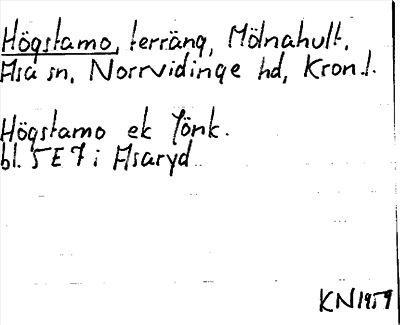 Högstamo, terräng, Mölnahult,
Asa sn, Norrvidinge hd, Kron.l.
Högstamo ek Jönk.
bl. 5E7 i Asaryd
KN1959